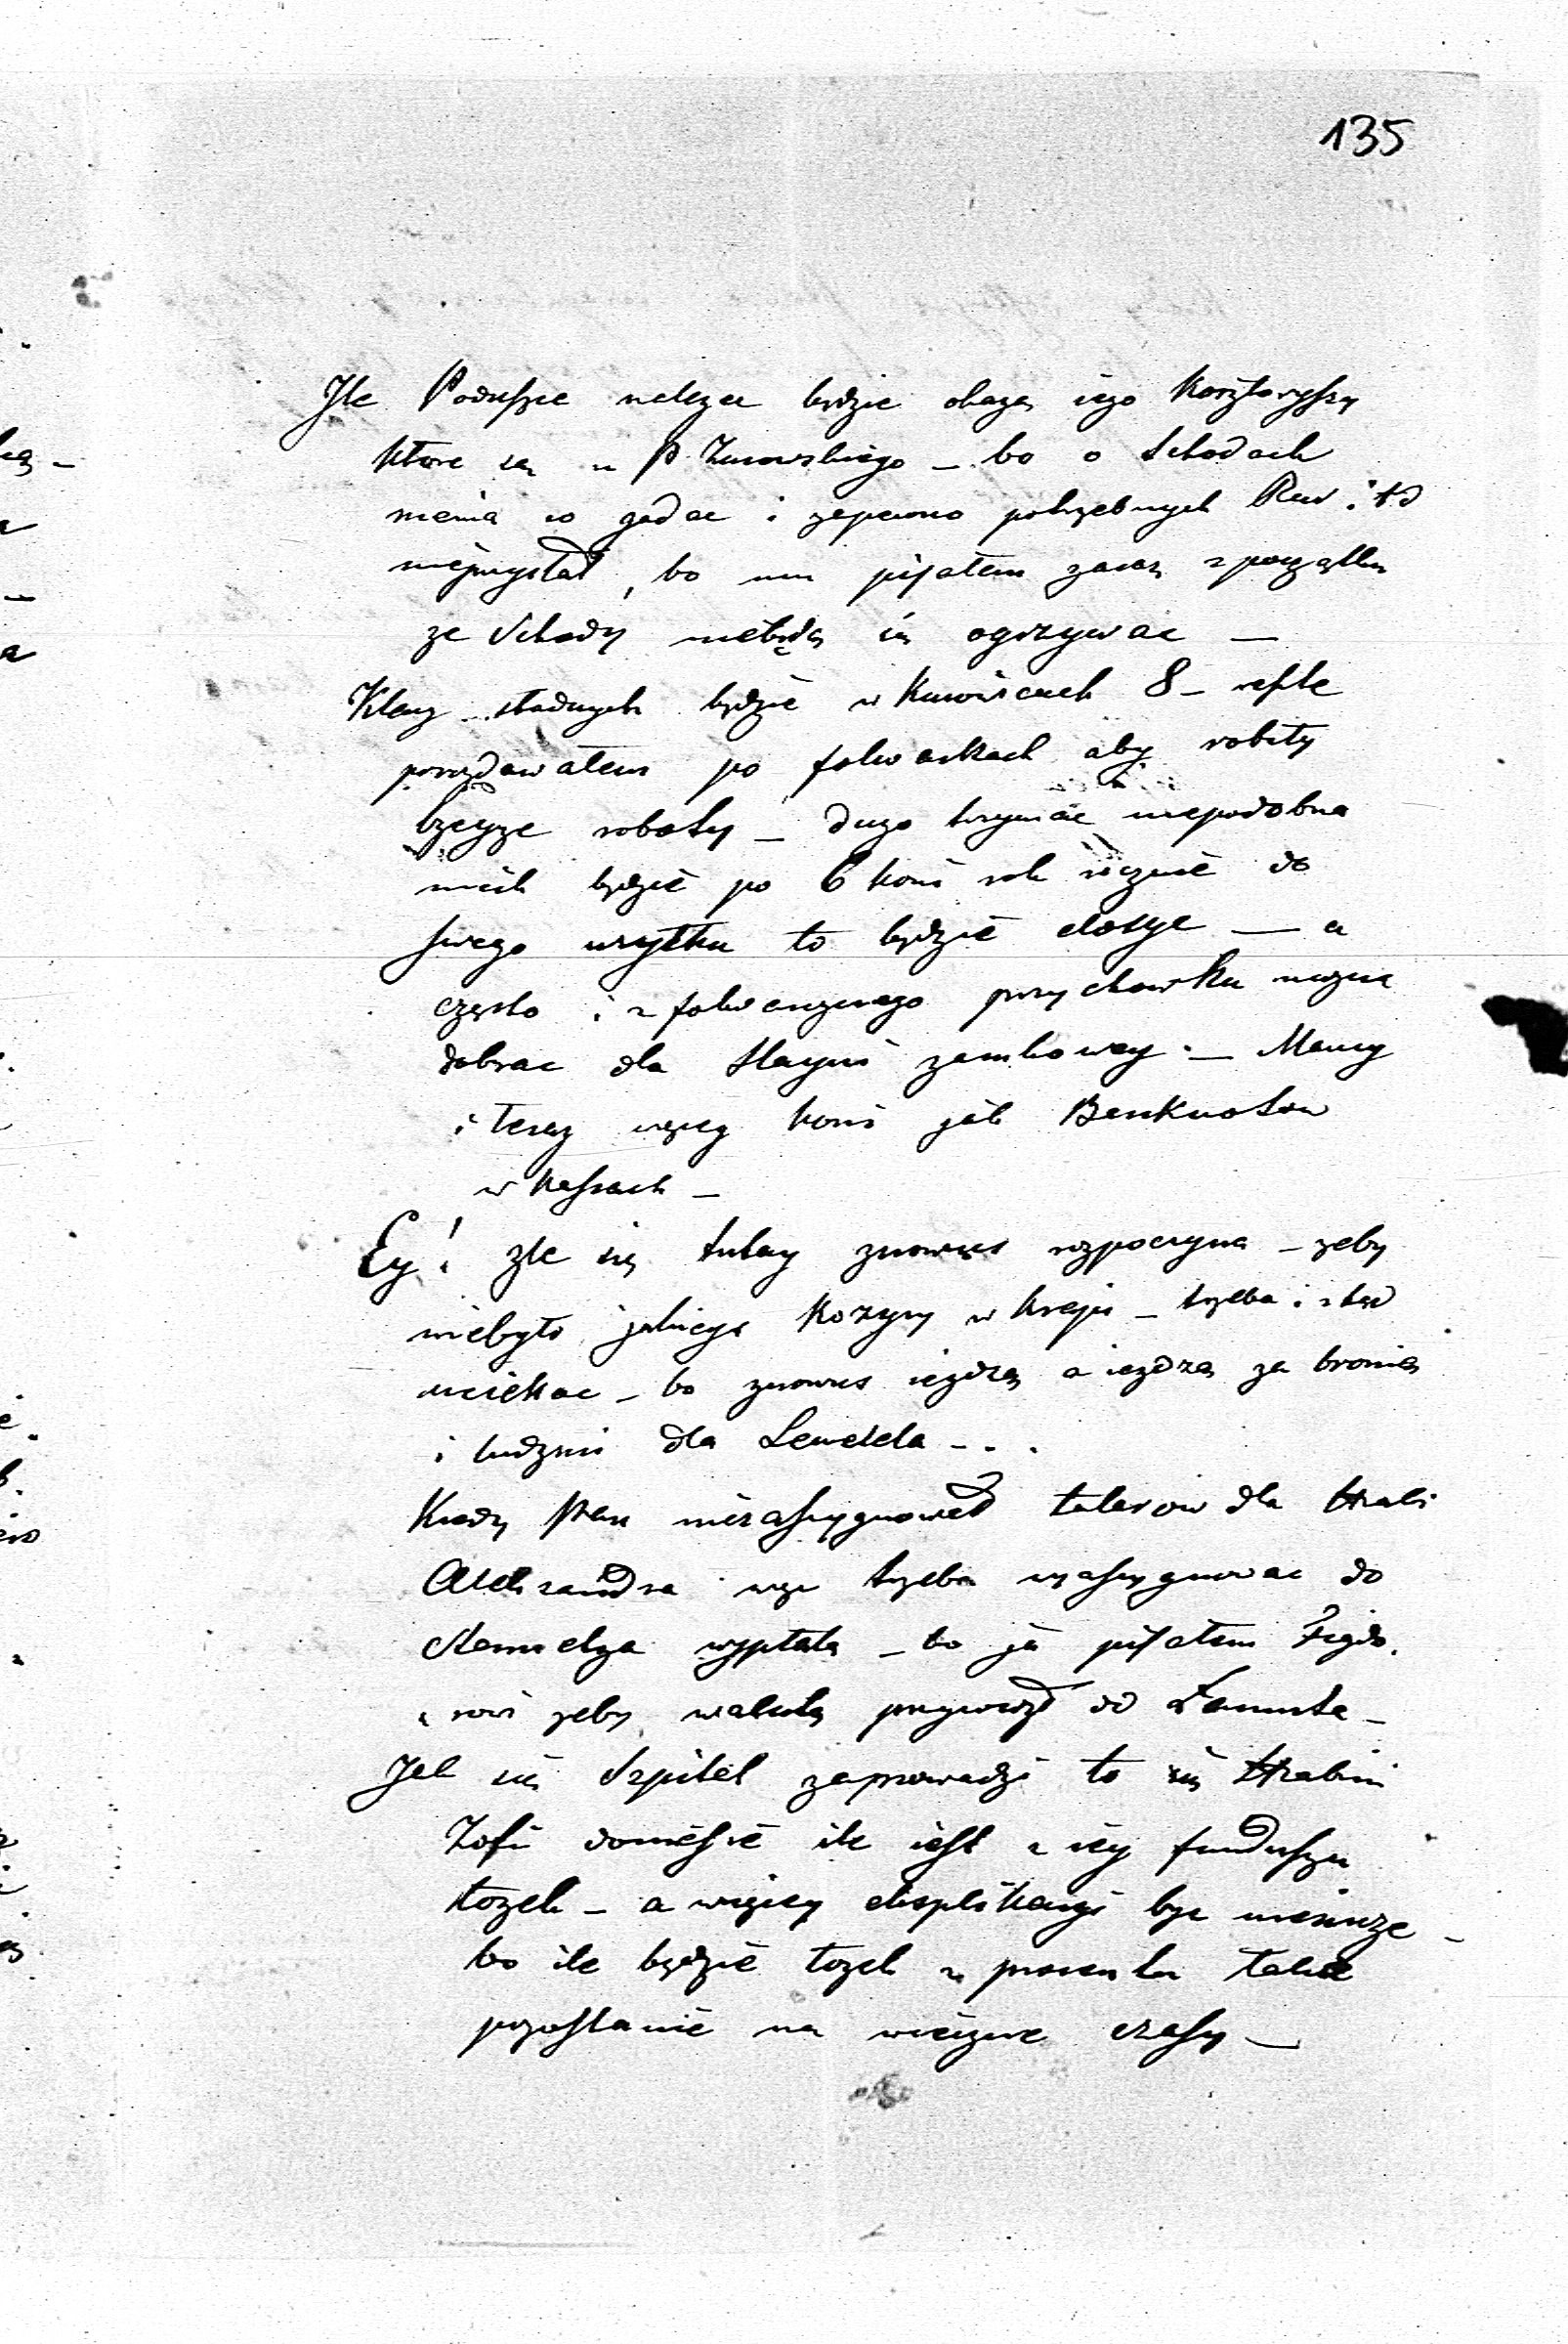 135
Ile Poduszce nalezec będzie okażą iego Kosztoryssy
ktore są u P Zurowskiego _ bo o Schodach
niema co gadac i zapewno potrzebnych Rur i td
nieprzysłał, bo mu pisałem zaraz z początku
ze Schody niebędą się ogrzywac —
Klacz stadnych będzie w Kurowicach 8 _ reszte
porozdawałem po folwarkach aby robiły
lzeysze roboty _ duzo trzymac niepodobna
niech będzie po 6 koni rok rocznie do
swego uzytku to będzie dosyc — a
często i z folwarcznego przychowku mozna
dobrac dla Stayni zamkowey. — Mamy
i teraz więcey koni jak Banknotow
w kassach _
Ey! zle się tutay znowus rozpoczyna _ zeby
niebyło jakiego Kozyry w kraju _ trzeba i ztąd
uciekac _ bo znowus iezdzą a iezdzą za bronią
i ludzmi dla
Kiedy Pan niezassygnował talarow dla Hrabi
Alexandra więc trzeba zassygnowac do
wypłata _ bo ja pisałem Figdo,
rowi zeby walutę przywiozł do Łancuta _
Jak się Szpital zaprowadzi to się Hrabini
Zofii doniesie ile iest z iey funduszu
łozek _ a więcey eksplikacyi byc niemoze _
bo ile będzie łozek z procentu takie
pozostanie na wieczne czasy _